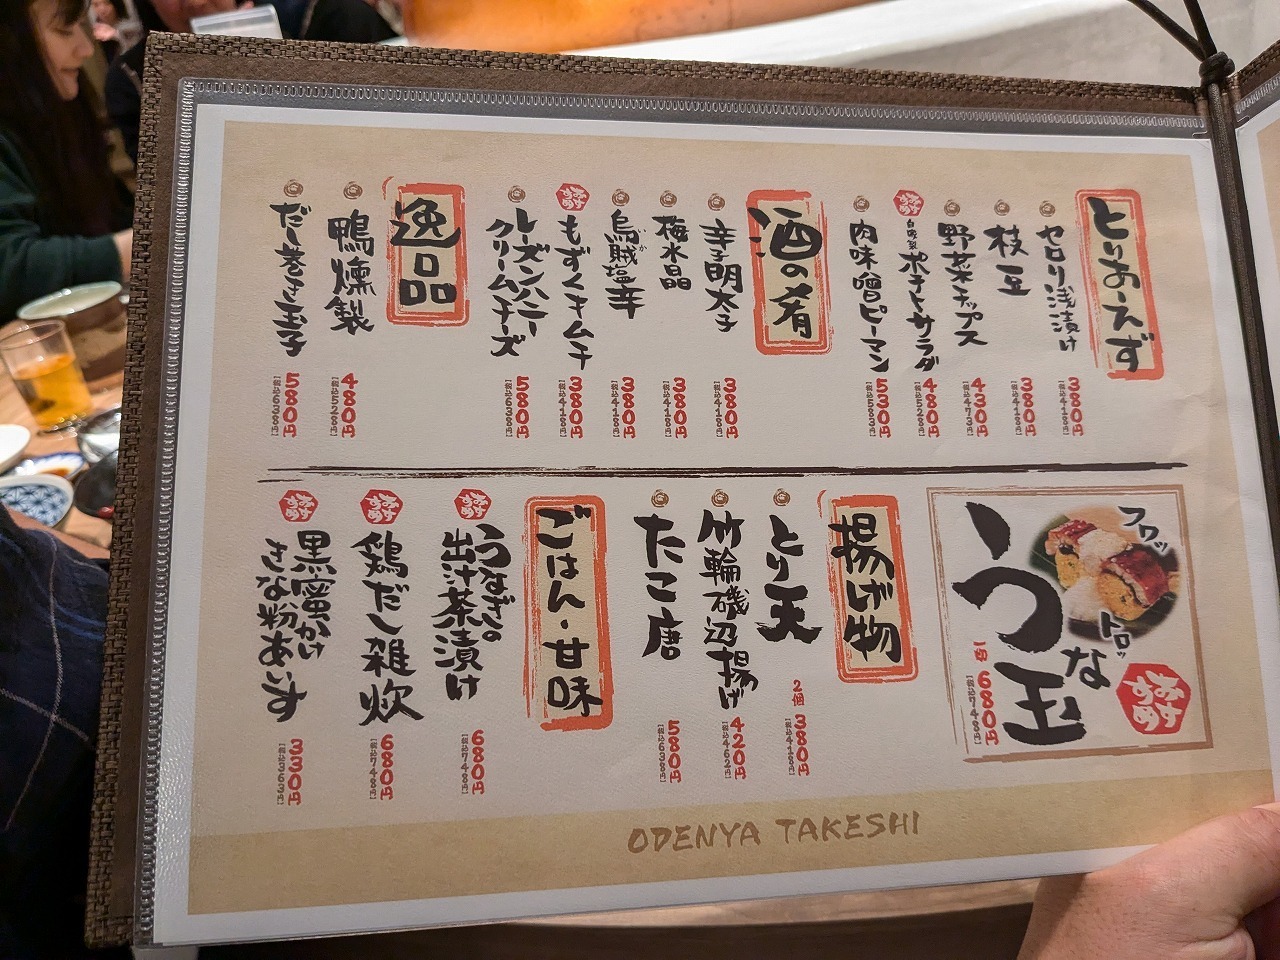 とりおえず
セロリ浅漬け
380円
[税込418円]
枝豆
380円
[税込418円]
野菜チップス
430円
[税込473円]
おすすめ
自家製ポテトサラダ
480円
[税込528円]
肉味噌ピーマン
530円
[税込583円]
酒の肴
辛子明太子
380円
[税込418円]
梅水晶
380円
[税込418円]
烏賊塩辛
380円
[税込418円]
おすすめ
もずくキムチ
380円
[税込418円]
レーズンハニー
クリームチーズ
580円
[税込638円]
逸品
鴨燻製
480円
[税込528円]
だし巻き玉子
580円
[税込638円]
フワッ
トロッ
うな玉
おすすめ
680円
[税込748円]
揚げ物
とり天
2個
380円
[税込418円]
竹輪磯辺揚げ
420円
[税込462円]
たこ唐
580円
[税込638円]
ごはん・甘味
おすすめ
うなぎの
出汁茶漬け
680円
[税込748円]
おすすめ
鶏だし雑炊
680円
[税込748円]
おすすめ
黒蜜かけ
きな粉あいす
330円
[税込363円]
ODENYA TAKESHI